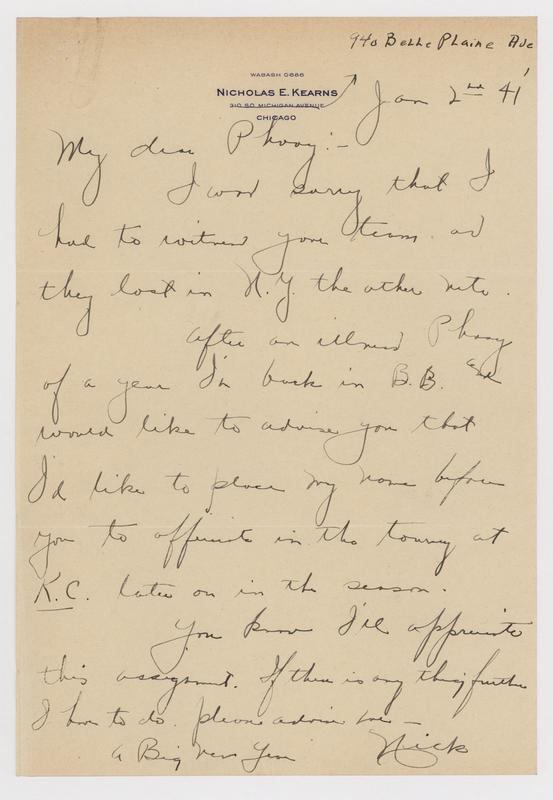 940 Belle Plaine Ave
WABASH 0686
NICHOLAS E. KEARNS
310 SO. MICHIGAN AVENUE
CHICAGO
Jan 2nd 41'
My dear Phog:-
I was sorry that I
had to witness your team as
they lost in N.Y. the other nite.
After an illness Phog
of a year I'm back in B.B. and
would like to advise you that
I'd like to place my name before
you to officiate in the tourney at
K.C. later on in the season.
You know I'll appreciate
this assignment. If there is any thing further
I have to do. please advise me -
a Big New Year
Nick